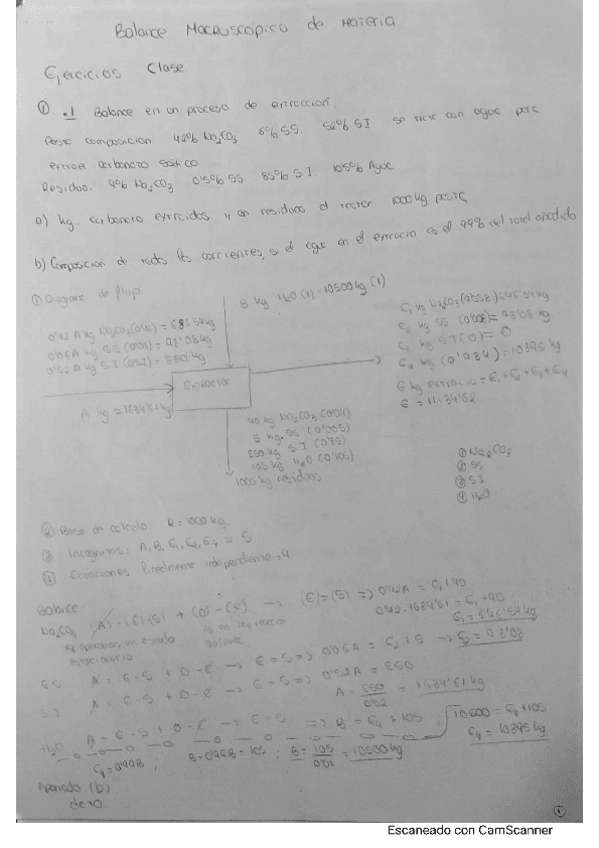 Balance Macroscópico de Materia
Ejercicios Clase
① .1 Balance en un proceso de extracción.
Pasta composición 42% Na2CO3 6% SS 52% SI se trate con agua para
extraer carbonato sódico
Residuo. 4% Na2CO3 0'5% SS 85% SI 10'5% Agua
a) kg. carbonato extraidos y en residuos al tratar 1000 kg pasta
b) Composición de todas las corrientes, si el agua en el extracto es el 99% del total añadido
① Diagrama de flujo
B kg H2O (1) = 10500 kg (1)
0'42 A kg Na2CO3 (0'42) = 686'54 kg
0'06 A kg SS (0'06) = 98'08 kg
0'52 A kg SI (0'52) = 850 kg
A kg = 1634'61 kg
Extractor
E1 kg Na2CO3 (0'058) 646'54 kg
E2 kg SS (0'008) = 93'08 kg
E3 kg SI (0) = 0
E4 kg (0'934) = 10395 kg
E kg extracto = E1 + E2 + E3 + E4
E = 11134'62
40 kg Na2CO3 (0'04)
5 kg SS (0'005)
850 kg SI (0'85)
105 kg H2O (0'105)
1000 kg residuos
① Na2CO3
② SS
③ SI
④ H2O
② Base de calculo. R = 1000 kg.
③ Incognitas: A, B, E1, E2, E4 = 5
④ Ecuaciones linealmente independiente = 4
Balance:
Na2CO3 (A) = (E) - (S) + (0) - (C) → (E) = (S) => 0'42A = E1 + 40
0'42 · 1634'61 = E1 + 40
E1 = 646'54 kg
SS A = E - S + 0 - C → E = S => 0'06A = E2 + 5 → E2 = 93'08
SI A = E - S + 0 - C → E = S => 0'52A = 850
A = 850/0'52 = 1634'61 kg
H2O A = E - S + 0 - C → E = S => B = E4 + 105 ; 10500 = E4 + 105
E4 = 0'99B ; B - 0'99B = 105 ; B = 105/0'01 = 10500 kg
E4 = 10395 kg
Apartado (b)
①
Escaneado con CamScanner